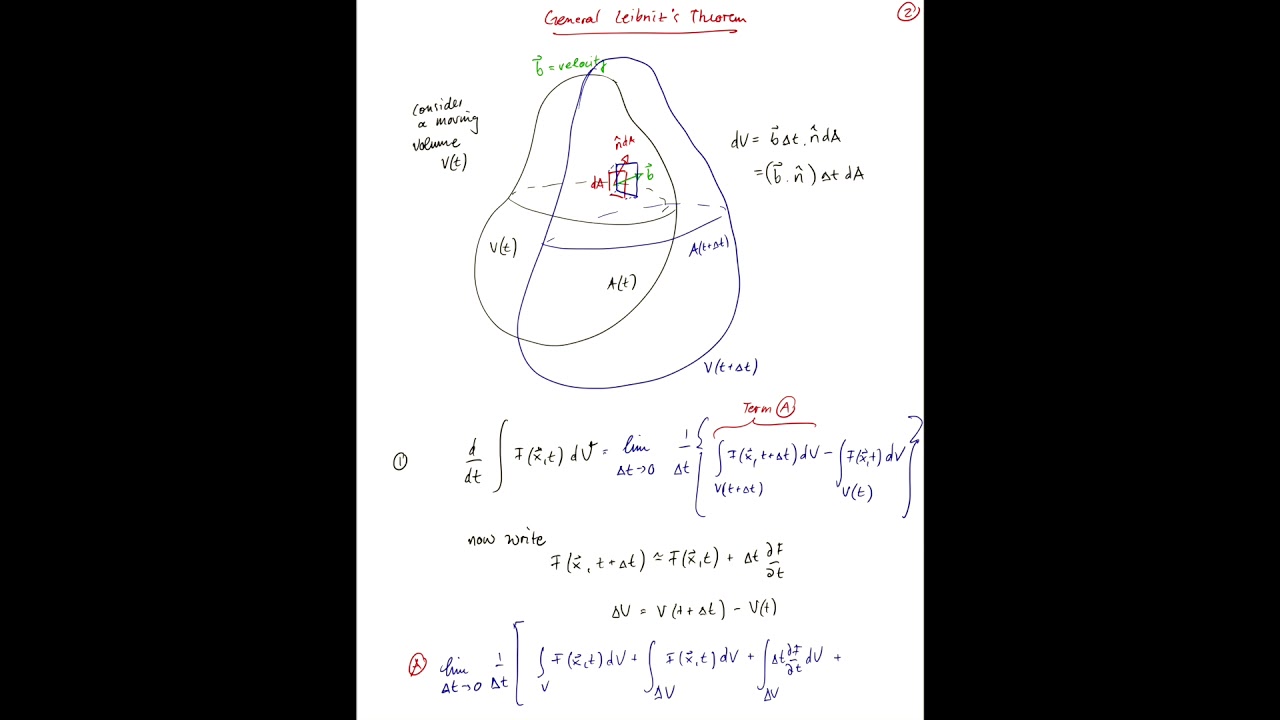 General Leibnit's Theorem
②
b⃗ = velocity
consider
a moving
volume
V(t)
n̂ dA
dA
b⃗
dV = b⃗ Δt . n̂ dA
= (b⃗ . n̂) Δt dA
V(t)
A(t+Δt)
A(t)
V(t+Δt)
Term Ⓐ
① d/dt ∫ F(x⃗,t) dV = lim Δt→0 1/Δt { ∫ V(t+Δt) F(x⃗, t+Δt) dV − ∫ V(t) F(x⃗,t) dV }
now write
F(x⃗, t+Δt) ≈ F(x⃗,t) + Δt ∂F/∂t
ΔV = V(t+Δt) − V(t)
Ⓐ lim Δt→0 1/Δt [ ∫ V F(x⃗,t) dV + ∫ ΔV F(x⃗,t) dV + ∫ ΔV Δt ∂F/∂t dV +